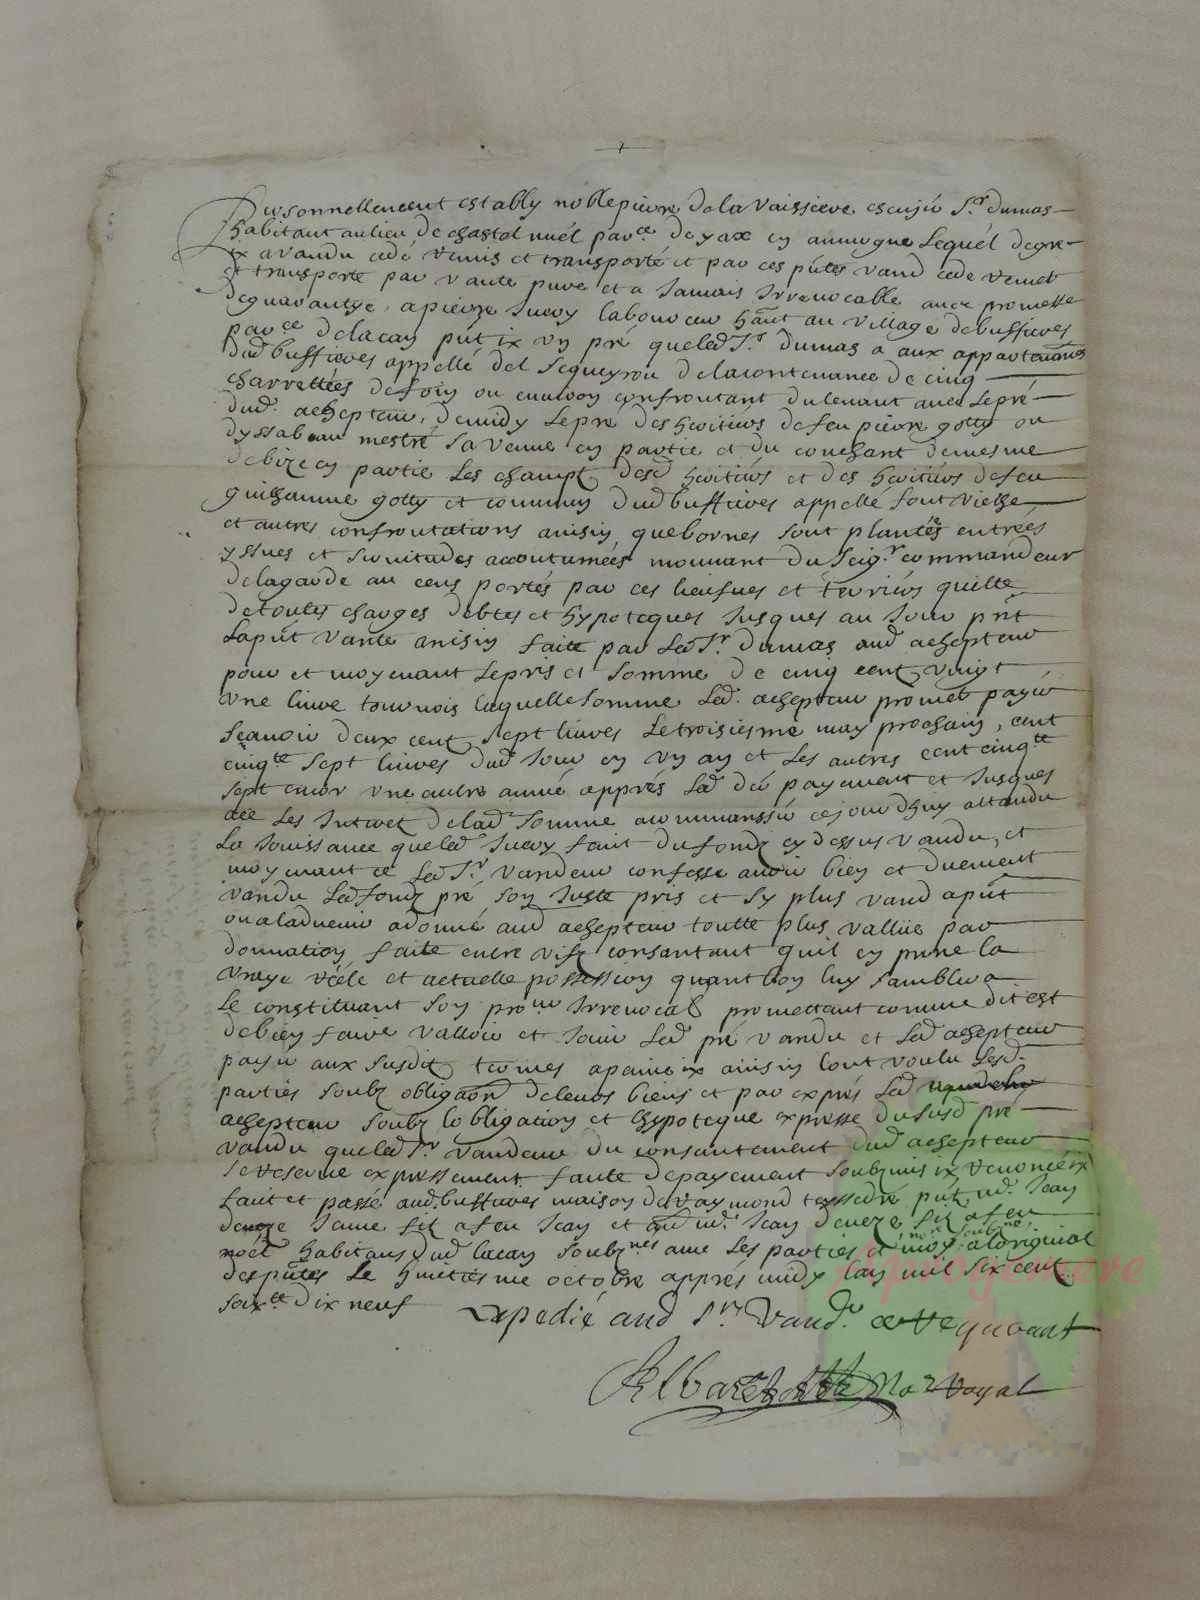 Personnellement estably noble pierre de la Vaissiere escuyer Sr. dumas
habitant au lieu de chastel nuél parce. deyax en auvergne Lequel de gre
ix a vandu cedé remis et transporté et par ces pñtes vand cede remet
et transporte par vante pure et a Jamais Irrevocable avec promesse
de guarantye, a pierre Juery laboureur hañt au village de bussieres
parce de lacan pñt ix un pré que led Sr. dumas a aux appartenances
dud bussieres appellé del Sequeyrou de la contenance de cinq
charrettées de foin ou environ confrontant du levant avec Le pré
dud. achepteur, de midy Le pré des heritiers de feu pierre gotty ou
dyssabeau mestré sa veuve en partie et du couchant de mesme
de bize en partie Les champs desd heritiers et des heritiers de feu
guilhaume gotty et commun dud bussieres appellé font Vielhe
et autres confrontations ainsin que bornes sont plantés entrées
yssues et servitudes accoutumées mouvant du Seigr. commandeur
de lagarde au cens portés par ces liesfues et terriers quitte
de toutes charges debtes et hypoteques Jusques au Jour pñt
La pñt vante ainsin faite par Led Sr. dumas aud achepteur
pour et moyenant Le pris et somme de cinq cent vingt
une livre tournois laquelle somme Led. achepteur promet payer
scavoir deux cent sept livres Le troisiesme may prochain, cent
cinqte sept livres dud Jour en un an et Les autres cent cinqte
sept encor une autre année apprés Led der payement et Jusques
ace Les Interet de lad somme a commanssér ce jourdhuy attandu
La Jouissance que led Juery fait du fondz cy dessus vandu, et
moyenant ce Led Sr. vandeur confesse avoir bien et duement
vandu Led fondz pré son Juste pris et sy plus vaud apñt
ou aladvenir a donné aud achepteur toutte plus vallüe par
donnation faite entre vifz consantant quil en prene la
vraye réele et actuelle possession quant bon luy samblera
Le constituant son procur Irrevocab promettant comme dit est
de bien faire valloir et Jouir Led pré vandu et Led achepteur
payer aux susditz termes a paine ix ainsin lont voulu Lesd.
parties soubz obligaon de leurs biens et par exprés Led
achepteur soubz lobligation et hypoteque expresse du susd pré
vandu que led Sr vandeur du consantement dud achepteur
se reserve expressement faute de payement soubzmis ix renoncé ix
fait et passé aud. bussieres maison de raymond teyssedré pñt, me. Jean
deveze Jeune filz a feu Jean et me. Jean deveze filz a feu
noél habitans dud lacan soubznés avec Les parties et moy nore soubzne, a loriginal
des pñtes Le huitiesme octobre apprés midy lan mil six cent
soixte dix neuf Expedié aud Sr. Vandr. ce Requerant
Albaret Nore Royal